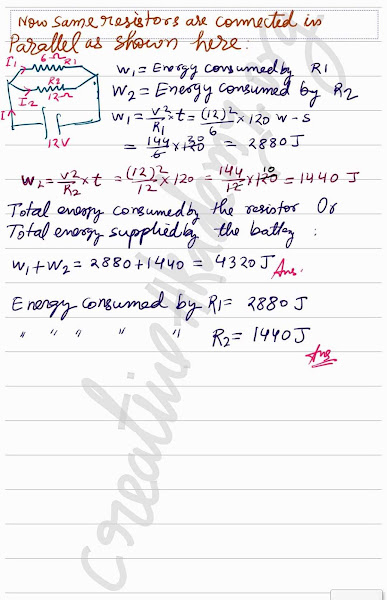 Now same resistors are connected in
Parallel as shown here:
I1 6Ω R1
R2
I2 12Ω
I
12V
W1 = Energy consumed by R1
W2 = Energy consumed by R2
W1 = V²/R1 × t = (12)²/6 × 120 W-S
= 144/6 × 120 20 = 2880 J
W2 = V²/R2 × t = (12)²/12 × 120 = 144/12 × 120 10 = 1440 J
Total energy consumed by the resistor Or
Total energy supplied by the battey :
W1 + W2 = 2880 + 1440 = 4320 J Ans.
Energy consumed by R1 = 2880 J
" " " " " R2 = 1440 J
Ans